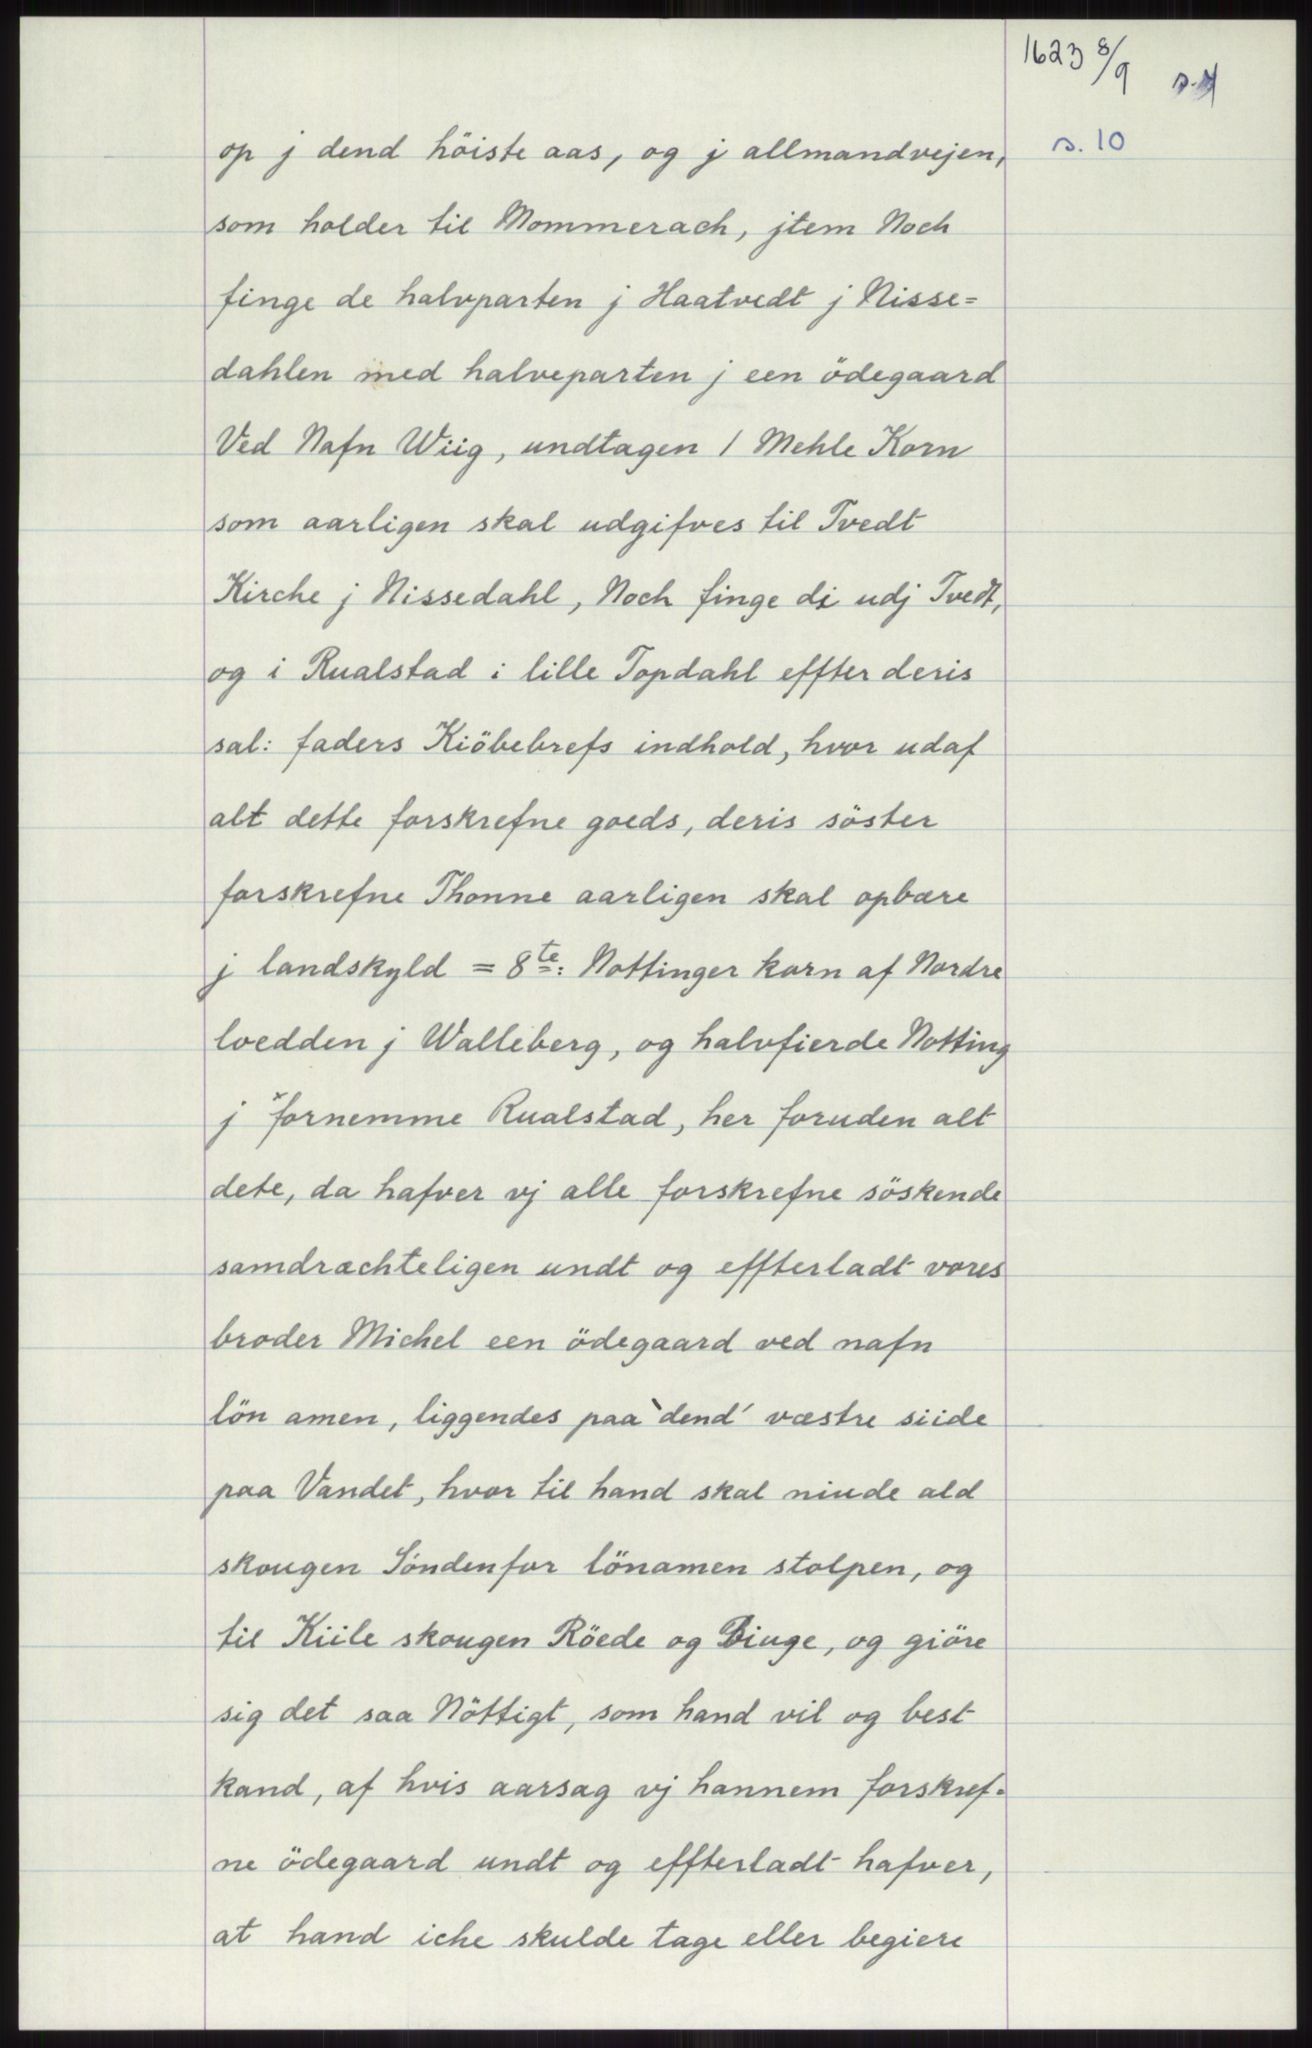 1623 8/9
s. 10
op j dend höiste aas, og j allmandvejen,
som holder til Mommerach, jtem Noch
finge de halvparten j Haatvedt j Nisse=
dahlen med halveparten j een ödegaard
Ved Nafn Wiig, undtagen 1 Mehle Korn
som aarligen skal udgifves til Tvedt
Kirche j Nissedahl, Noch finge di udj Tvedt,
og i Rualstad i lille Topdahl effter deris
sal: faders Kiöbebrefs indhold, hvor udaf
alt dette forskrefne goeds, deris söster
forskrefne Thonne aarligen skal opbære
j landskyld = 8te: Nottinger korn af Nordre
loedden j Walleberg, og halvfierde Notting
j fornemme Rualstad, her foruden alt
dete, da hafver vj alle forskrefne söskende
samdrachteligen undt og effterladt vores
broder Michel een ödegaard ved nafn
lön amen, liggendes paa `dend´ væstre siide
paa Vandet, hvor til hand skal niude ald
skougen Söndenfor lönamen stolpen, og
til Kiile skougen Röede og Biuge, og giöre
sig det saa Nöttigt, som hand vil og best
kand, af hvis aarsag vj hannem forskref=
ne ödegaard undt og effterladt hafver,
at hand iche skulde tage eller begiere